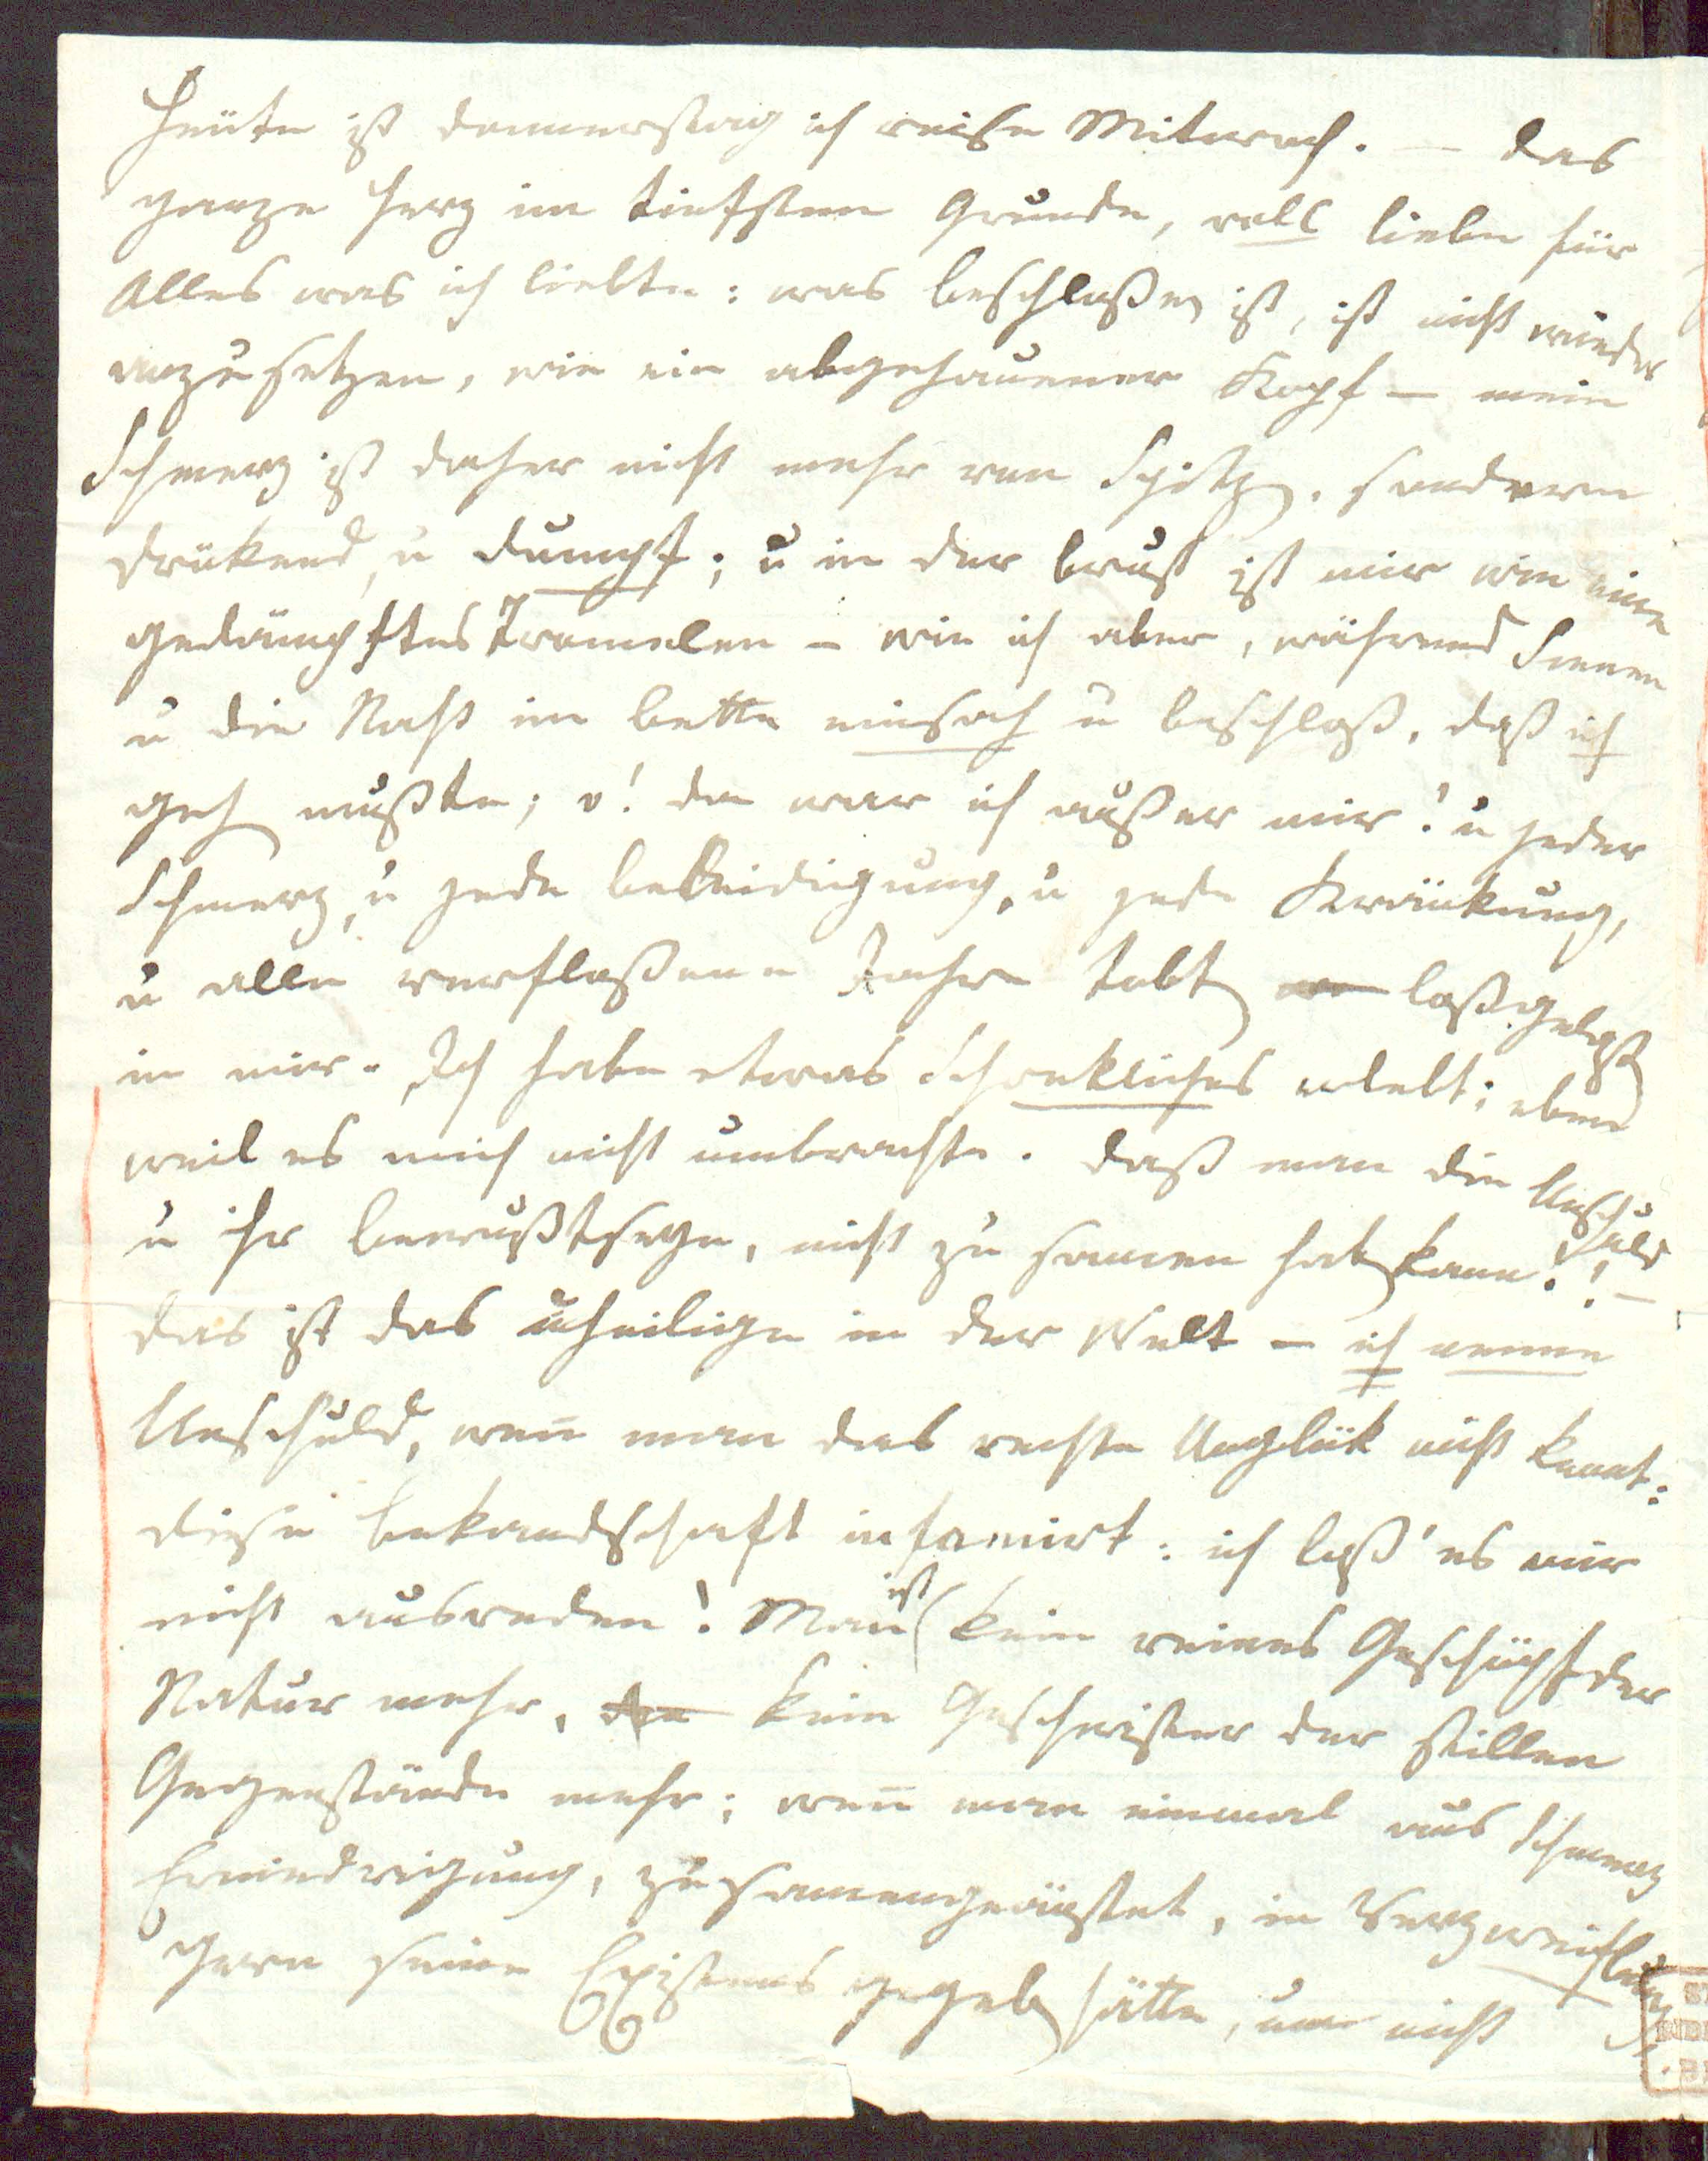 Heüte ist donnerstag ich reise Mitwoch. — das
ganze Herz im tiefsten Grunde, voll liebe für
Alles was ich liebte: was beschloßen ist, ist nicht wieder
anzusetzen, wie ein abgehauener Kopf — mein
Schmerz ist daher nicht mehr von Spitzen. sondern
drükend, u dumpf; u in der brust ist mir wie eine
gedämpftes Tromelen — wie ich aber, während
u die Nacht im bette einsah u beschloß, daß ich
gehen mußte; o! da war ich außer mir! u jeder
Schmerz, u jede beleidigung, u jede Kränkung,
u alle verfloßene Jahre tobten loßgelaßen
in mir. Ich habe etwas Schrekliches erlebt; eben
weil es mich nicht umbrachte. daß man die Unschuld
u ihr bewußtseyn, nicht zu samen haben kann!! —
das ist das unheilige in der Welt — ich nenne
Unschuld, wen̄ man das rechte Unglük nicht kennt:
diese bekandschaft infamirt: ich laß' es mir
nicht ausreden! Man ist kein reines Geschöpf der
Natur mehr, kein Geschwister der stillen
Gegenstände mehr; wen̄ man einmal aus Schmerz
Erniedrigung, zusamengeängstet, in Verzweiflung
gern seine Existens gegeben hätte, um nicht